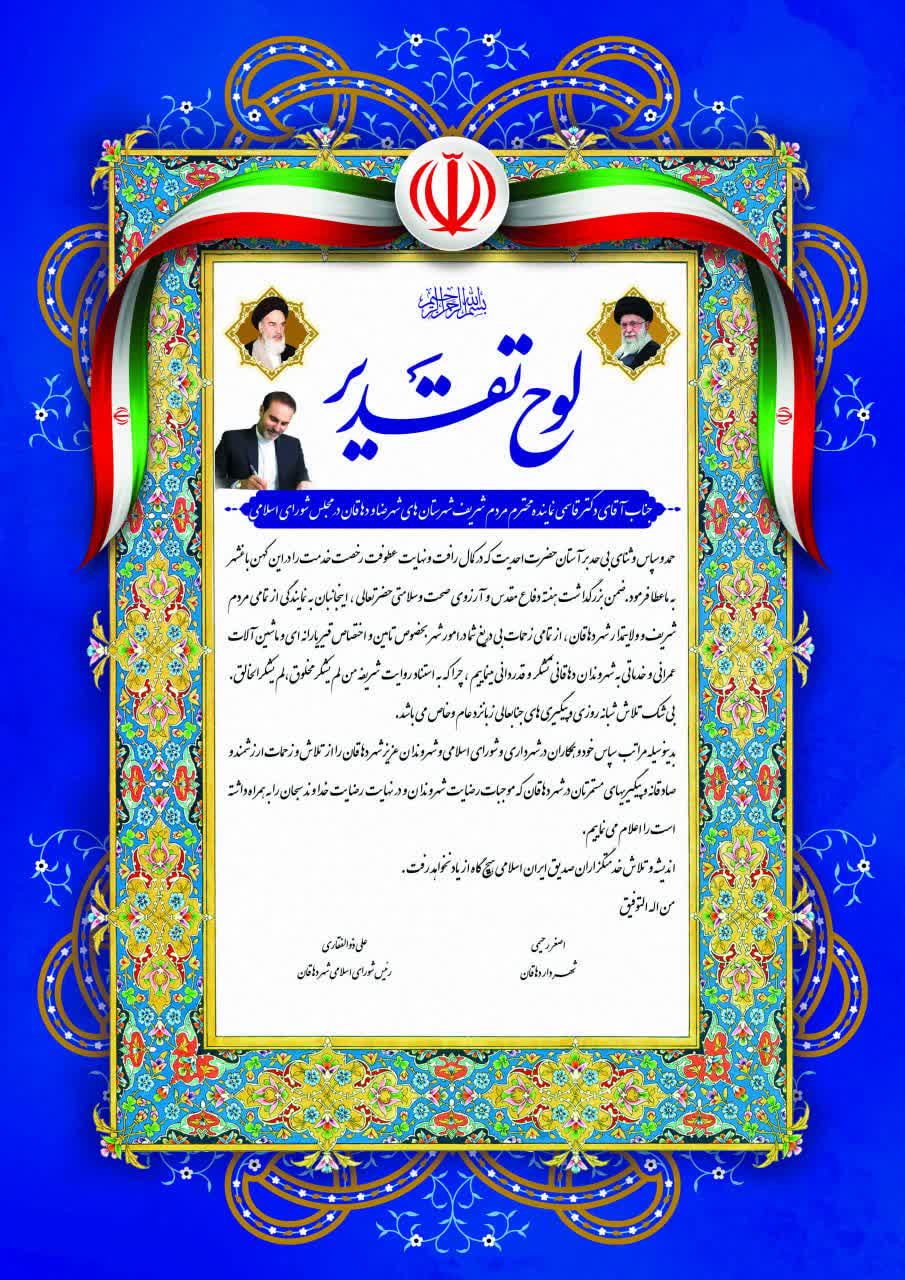 بسم الله الرحمن الرحیم
لوح تقدیر
جناب آقای دکتر قاسمی نماینده محترم مردم شریف شهرستان های شهرضا و دهاقان در مجلس شورای اسلامی
حمد و سپاس و ثنای بی حد بر آستان حضرت احدیت که در کمال رافت و نهایت عطوفت رخصت خدمت را در این کهن بانشهر
به ما عطا فرمود. ضمن بزرگداشت هفته دفاع مقدس و آرزوی صحت و سلامتی حضرتعالی ، اینجانبان به نمایندگی از تمامی مردم
شریف و ولایتمدار شهر دهاقان ، از تمامی زحمات بی دریغ شما در امور شهر بخصوص تامین و اختصاص قیر یارانه ای و ماشین آلات
عمرانی و خدماتی به شهروندان دهاقانی تشکر و قدردانی مینماییم ، چرا که به استناد روایت شریفه من لم یشکر مخلوق، لم یشکر الخالق.
بی شک تلاش شبانه روزی و پیگیری های جنابعالی زبانزد عام و خاص می باشد.
بدینوسیله مراتب سپاس خود و همکاران در شهرداری و شورای اسلامی و شهروندان عزیز شهر دهاقان را از تلاش و زحمات ارزشمند و
صادقانه و پیگیریهای مستمرتان در شهر دهاقان که موجبات رضایت شهروندان و در نهایت رضایت خداوند سبحان را به همراه داشته
است را اعلام می نماییم.
اندیشه و تلاش خدمتگزاران صدیق ایران اسلامی هیچ گاه از یاد نخواهد رفت.
من اله التوفیق
اصغر رحیمی
علی ذوالفقاری
شهردار دهاقان
رئیس شورای اسلامی شهر دهاقان